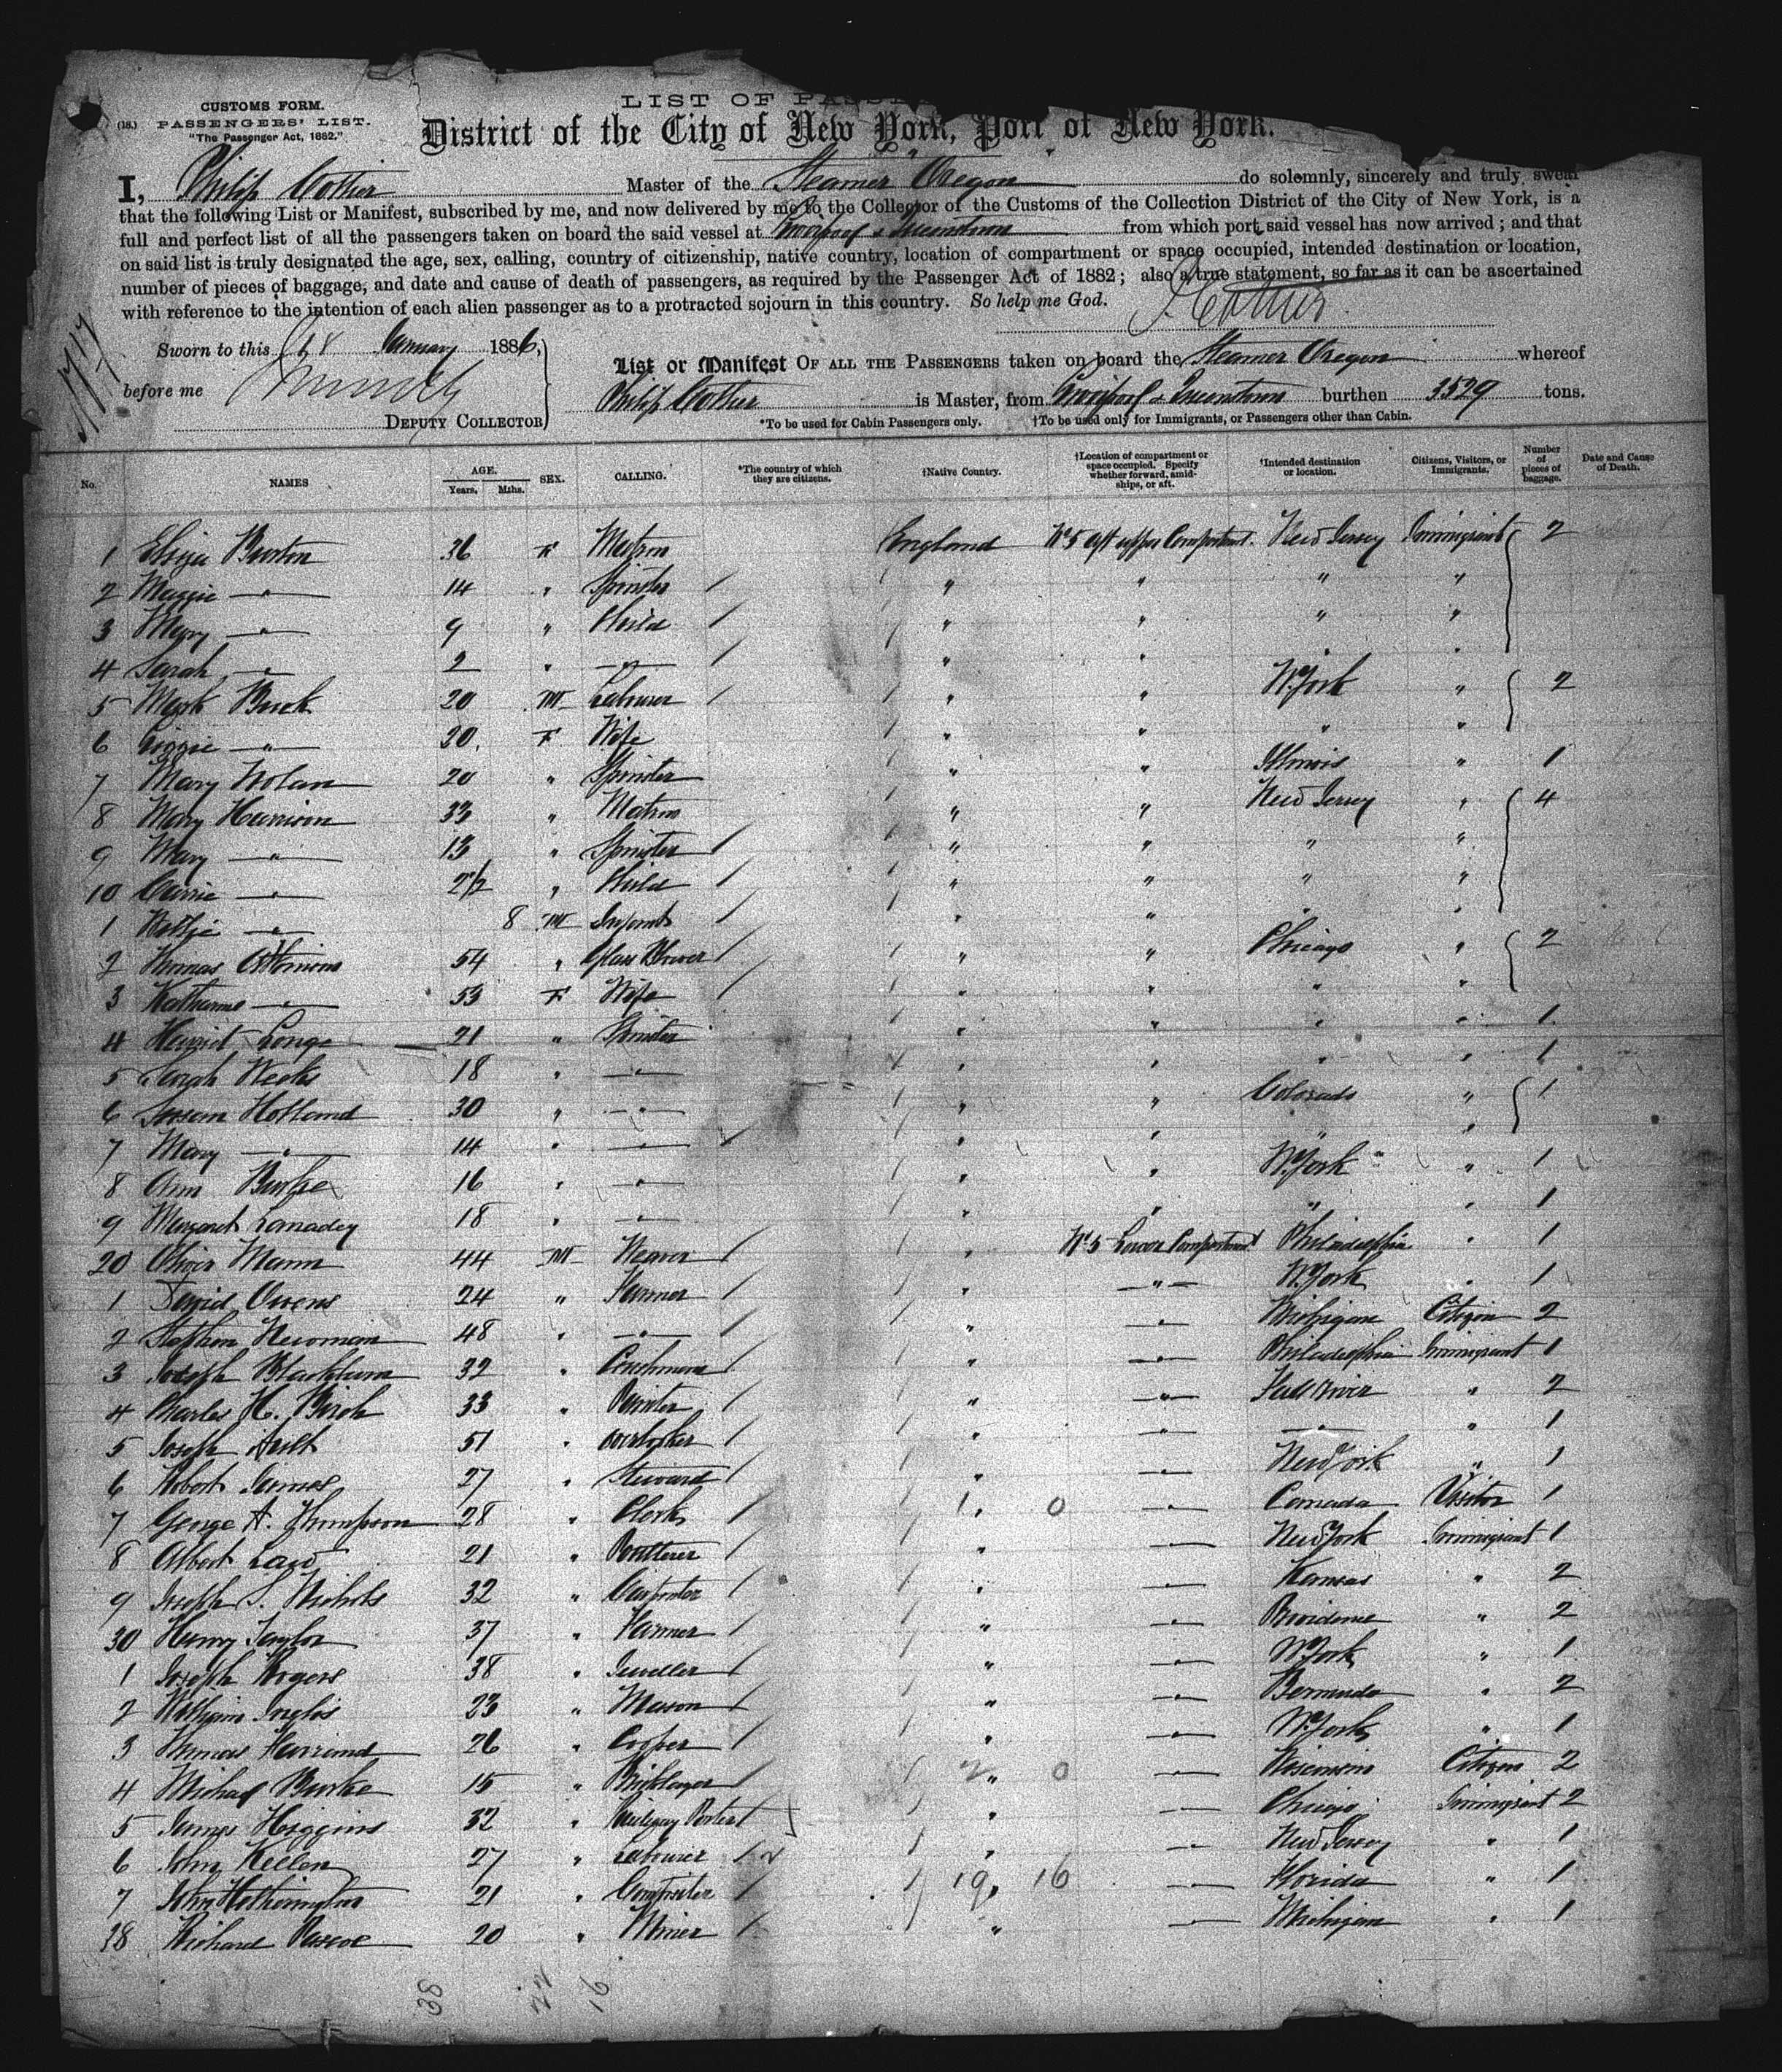 CUSTOMS FORM.
(18.) PASSENGERS' LIST.
"The Passenger Act, 1882."
LIST OF
District of the City of New York, Port of New York.
I, Philip Cottier Master of the Steamer Oregon do solemnly, sincerely and truly swear
that the following List or Manifest, subscribed by me, and now delivered by me to the Collector of the Customs of the Collection District of the City of New York, is a
full and perfect list of all the passengers taken on board the said vessel at Liverpool & Queenstown from which port said vessel has now arrived; and that
on said list is truly designated the age, sex, calling, country of citizenship, native country, location of compartment or space occupied, intended destination or location,
number of pieces of baggage, and date and cause of death of passengers, as required by the Passenger Act of 1882; also a true statement, so far as it can be ascertained
with reference to the intention of each alien passenger as to a protracted sojourn in this country. So help me God. P. Cottier
Sworn to this 18 January 1886,
before me
DEPUTY COLLECTOR
List or Manifest OF ALL THE PASSENGERS taken on board the Steamer Oregon whereof
Philip Cottier is Master, from Liverpool & Queenstown burthen 3529 tons.
*To be used for Cabin Passengers only. †To be used only for Immigrants, or Passengers other than Cabin.
No. NAMES AGE. Years, Mths. SEX. CALLING. *The country of which they are citizens. †Native Country. †Location of compartment or space occupied. Specify whether forward, amidships, or aft. †Intended destination or location. Citizens, Visitors, or Immigrants. Number of pieces of baggage. Date and Cause of Death.
1 Eliza Burton 36 F Matron England No 5 aft upper Compartment New Jersey Immigrant 2
2 Maggie " 14 " Spinster " " " "
3 Mary " 9 " Child " " " "
4 Sarah " 2 " " " " " "
5 Mark Buck 20 M Labourer " " N. York " 2
6 Lizzie " 20 F Wife " " " "
7 Mary Nolan 20 " Spinster " " Illinois " 1
8 Mary Harrison 33 " Matron " " New Jersey " 4
9 Mary " 13 " Spinster " " " "
10 Carrie " 2 1/2 " Child " " " "
1 " 8 M Infant " " " "
2 Thomas 54 " Glass Blower " " Chicago " 2
3 Katharine " 53 F Wife " " " "
4 Harriet Longe 21 " Spinster " " " " 1
5 Sarah Weeks 18 " " " " " " 1
6 Susan Holland 30 " " " " Colorado " 1
7 Mary " 14 " " " " " "
8 Ann Burke 16 " " " " N. York " 1
9 Margaret 18 " " " " " " 1
20 Oliver Mann 44 M Weaver " No 5 Lower Compartment Philadelphia " 1
1 David Owens 24 " Farmer " " N. York " 1
2 Stephen Newman 48 " " " " Michigan Citizen 2
3 Joseph Blackburn 32 " Coachman " " Philadelphia Immigrant 1
4 Charles H. Birch 33 " Painter " " Fall River " 2
5 Joseph Ault 51 " Overlooker " " " " 1
6 Robert James 27 " Steward " " New York " 1
7 George A. Thompson 28 " Clerk 1 " 0 " Canada Visitor 1
8 Albert Law 21 " Poulterer " " New York Immigrant 1
9 Joseph S. Nichols 32 " Carpenter " " Kansas " 2
30 Henry Taylor 37 " Farmer " " Providence " 2
1 Joseph Rogers 38 " Jeweller " " N. York " 1
2 William Inglis 23 " Mason " " Bermuda " 2
3 Thomas 26 " Cooper " " N. York " 1
4 Michael Burke 15 " Bricklayer 2 " 0 " Wisconsin Citizen 2
5 James Higgins 32 " Railway Porter " " Chicago Immigrant 2
6 John Kellen 27 " Labourer " " New Jersey " 1
7 John Hetherington 21 " Compositor 19 " 16 " Florida " 1
38 Richard Pascoe 20 " Miner " " Michigan " 1
38 22 16